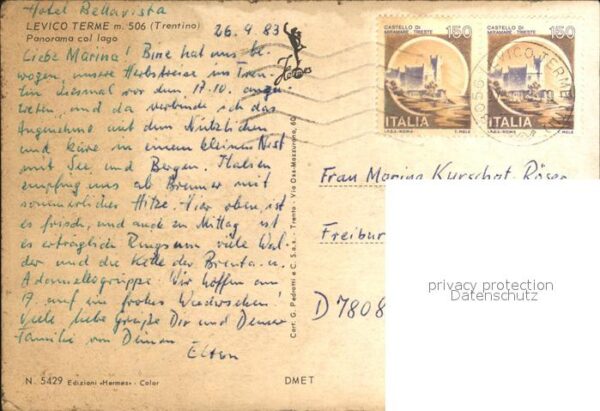 Hotel Bellavista
LEVICO TERME m. 506 (Trentino)
Panorama col lago
26.9.83
Liebe Marina! Bine hat uns be
wogen, unsere Herbstreise ins Tren
tin diesmal vor dem 17.10. anzu
treten, und da verbinde ich das
Angenehme mit dem Nützlichen
und kure in einem kleinen Nest
mit See und Bergen. Italien
empfing uns ab Brenner mit
sommerlicher Hitze. Hier oben ist
es frisch, und auch zu Mittag ist
es erträglich. Ringsum viele Wäl
der und die Kette der Brenta- u.
Adamellogruppe. Wir hoffen am
19. auf ein frohes Wiedersehen!
Viele liebe Grüße Dir und Deiner
Familie von Deinen
Eltern
N. 5429 Edizioni «Hermes» - Color
DMET
Cart. G. Pedrotti e C. S.a.s. - Trento - Via Oss-Mazzurana, 60
CASTELLO DI
MIRAMARE - TRIESTE
150
ITALIA
I.P.Z.S.-ROMA T. MELE
CASTELLO DI
MIRAMARE - TRIESTE
150
ITALIA
I.P.Z.S.-ROMA T. MELE
LEVICO TERME
Frau Marina Kurschat-Röser
Freibur
D 7808
privacy protection
Datenschutz